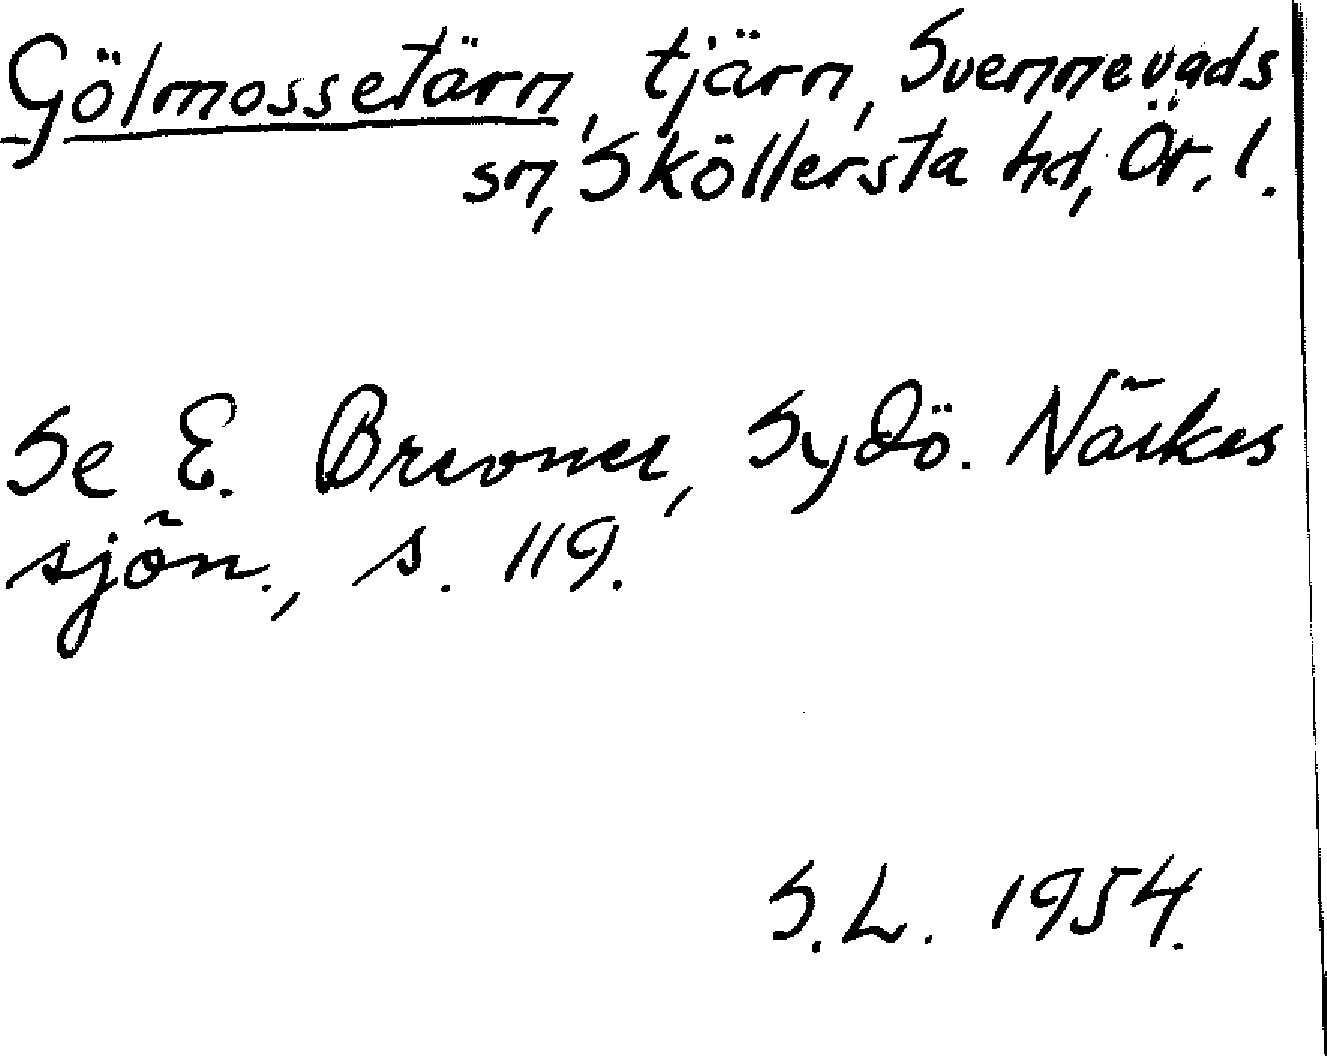 Gölmossetärn, tjärn, Svennevads
sn, Sköllersta hd, Ör. l.
Se E. Brevner, Sydö. Närkes
sjön., s. 119.
S.L. 1954.